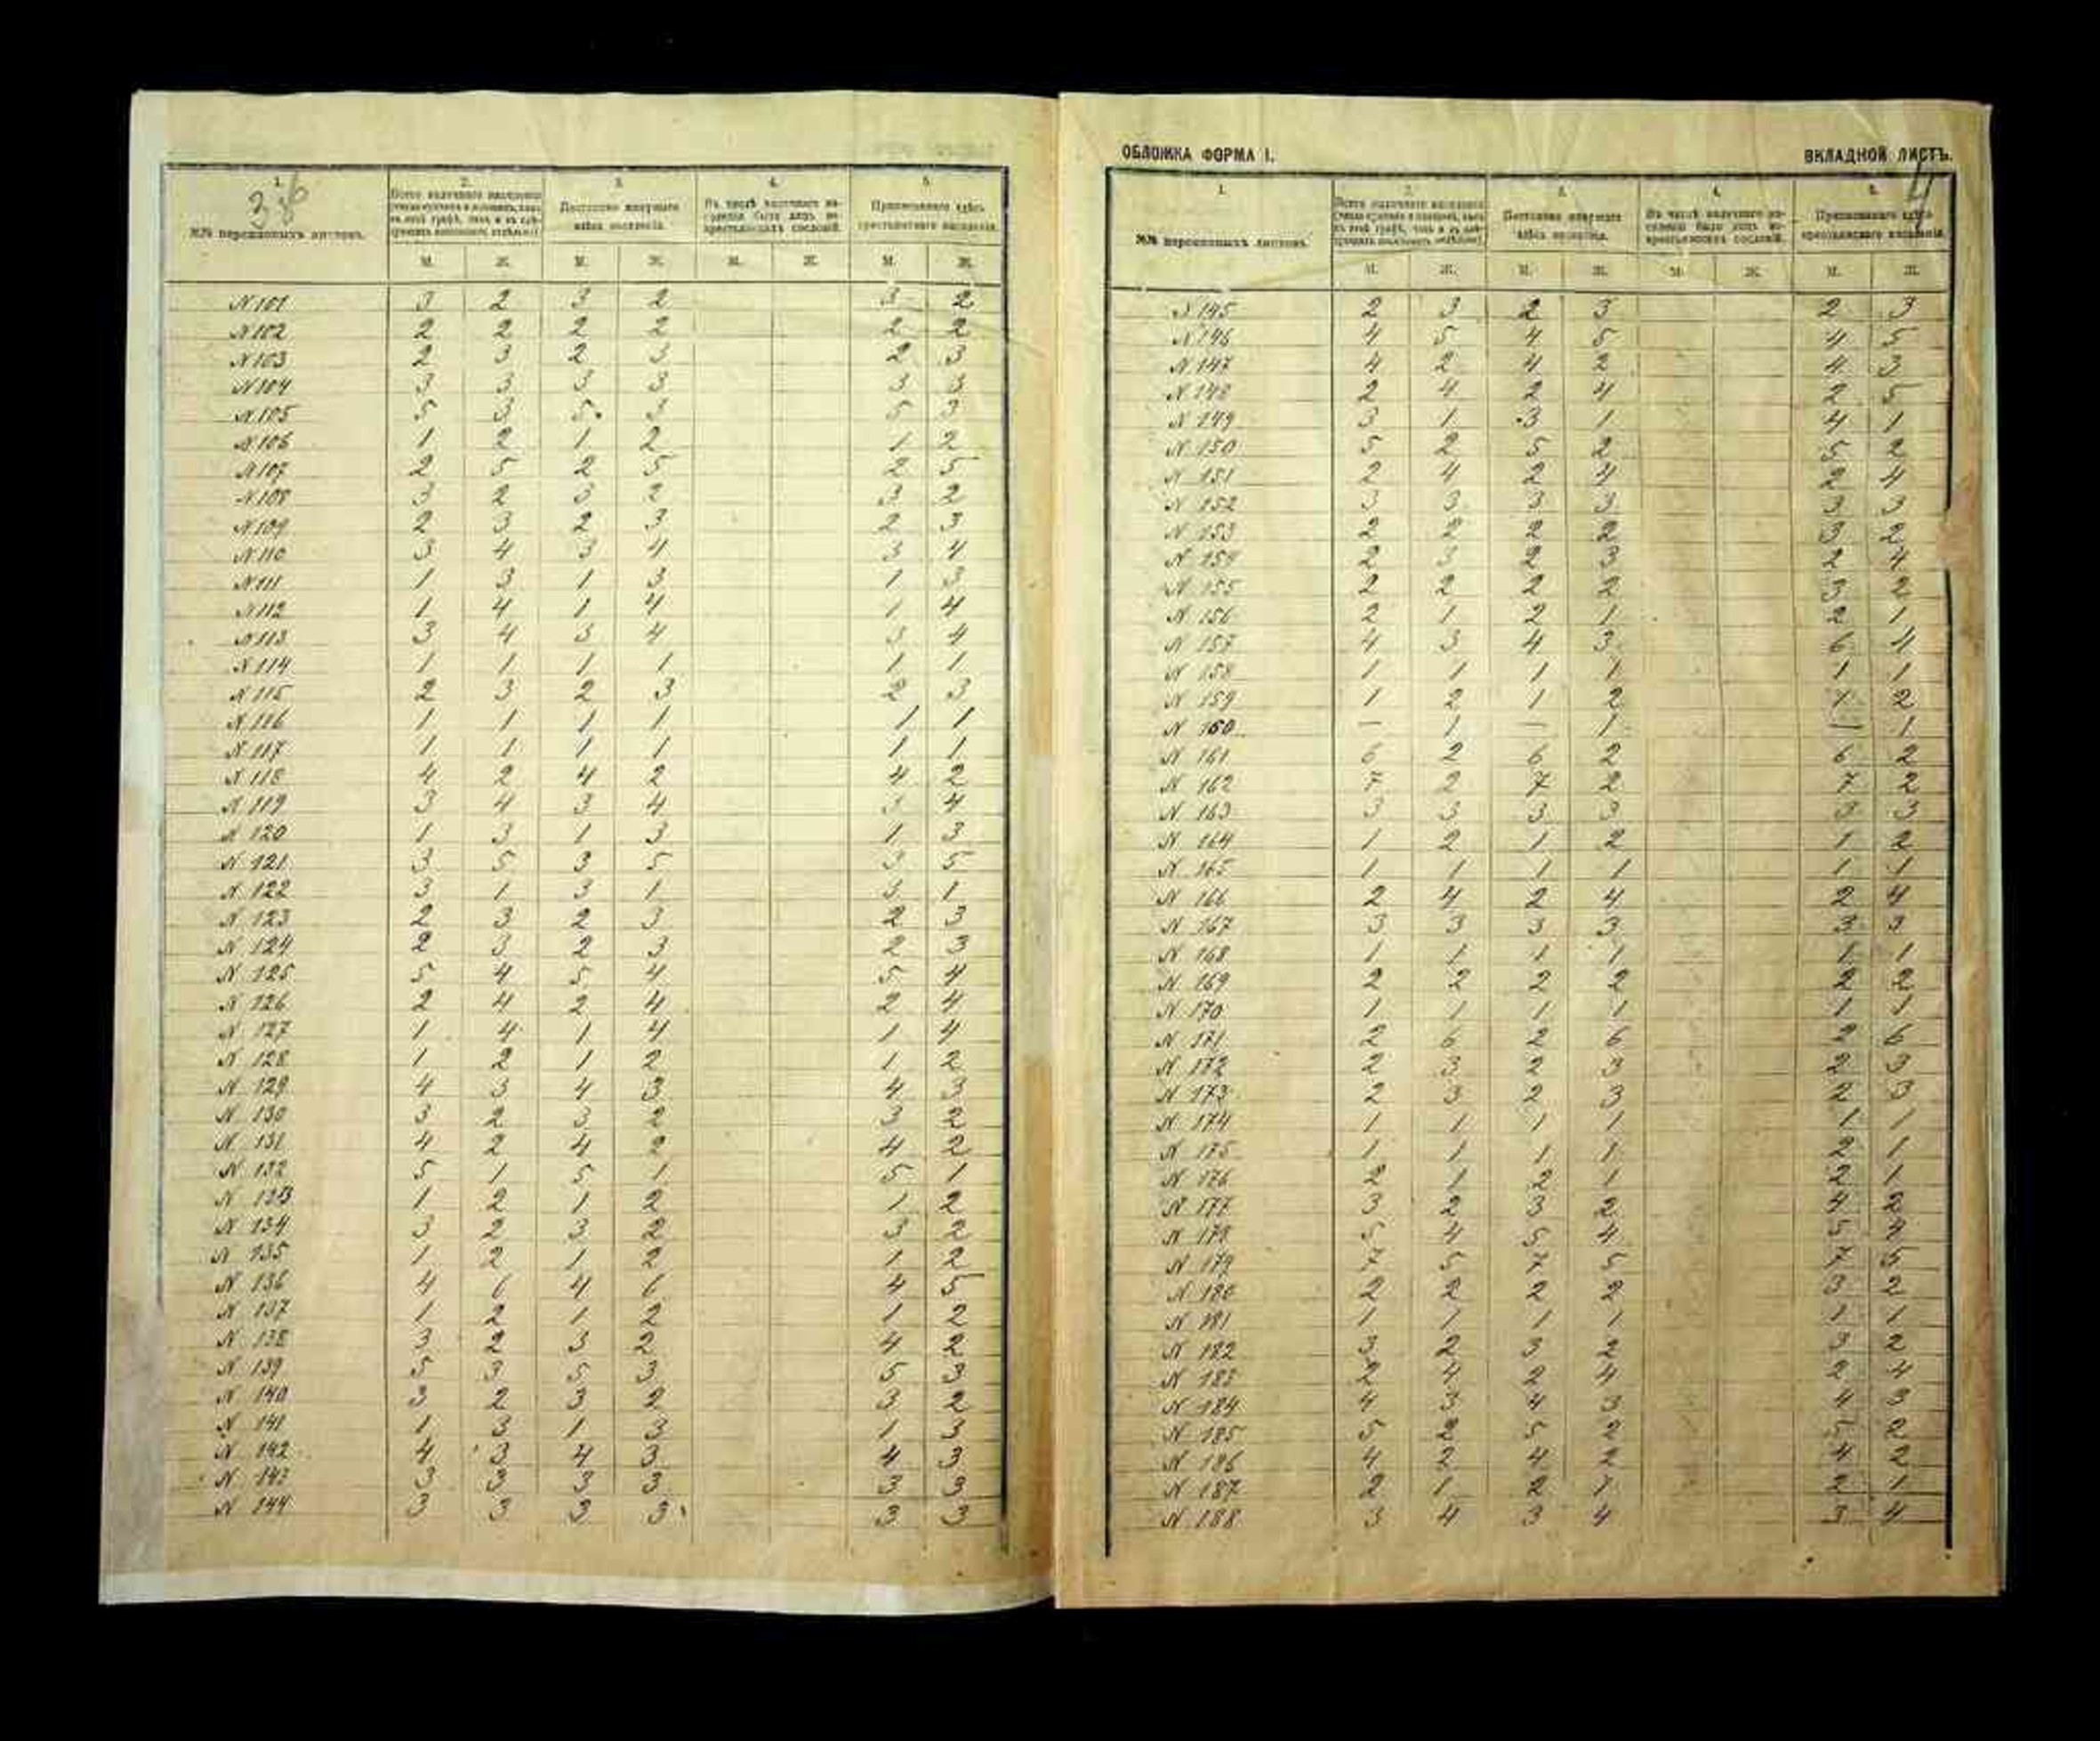 1. 2. 3. 4. 5.
3 3б
№№ переписныхъ листовъ.
Постоянно живущаго здѣсь населенія.
Въ числѣ наличнаго населенія было лицъ не крестьянскихъ сословій.
Приписаннаго здѣсь крестьянскаго населенія.
М. Ж. М. Ж. М. Ж. М. Ж.
N 101 3 2 3 2 3 2
N 102 2 2 2 2 2 2
N 103 2 3 2 3 2 3
N 104 3 3 3 3 3 3
N 105 5 3 5 3 5 3
N 106 1 2 1 2 1 2
N 107 2 5 2 5 2 5
N 108 3 2 3 2 3 2
N 109 2 3 2 3 2 3
N 110 3 4 3 4 3 4
N 111 1 3 1 3 1 3
N 112 1 4 1 4 1 4
N 113 3 4 3 4 3 4
N 114 1 1 1 1 1 1
N 115 2 3 2 3 2 3
N 116 1 1 1 1 1 1
N 117 1 1 1 1 1 1
N 118 4 2 4 2 4 2
N 119 3 4 3 4 3 4
N 120 1 3 1 3 1 3
N 121 3 5 3 5 3 5
N 122 3 1 3 1 3 1
N 123 2 3 2 3 2 3
N 124 2 3 2 3 2 3
N 125 5 4 5 4 5 4
N 126 2 4 2 4 2 4
N 127 1 4 1 4 1 4
N 128 1 2 1 2 1 2
N 129 4 3 4 3 4 3
N 130 3 2 3 2 3 2
N 131 4 2 4 2 4 2
N 132 5 1 5 1 5 1
N 133 1 2 1 2 1 2
N 134 3 2 3 2 3 2
N 135 1 2 1 2 1 2
N 136 4 6 4 6 4 5
N 137 1 2 1 2 1 2
N 138 3 2 3 2 4 2
N 139 5 3 5 3 5 3
N 140 3 2 3 2 3 2
N 141 1 3 1 3 1 3
N 142 4 3 4 3 4 3
N 143 3 3 3 3 3 3
N 144 3 3 3 3 3 3
ОБЛОЖКА ФОРМА I. ВКЛАДНОЙ ЛИСТЪ.
4
1. 2. 3. 4. 5.
№№ переписныхъ листовъ.
Постоянно живущаго здѣсь населенія.
Въ числѣ наличнаго населенія было лицъ не крестьянскихъ сословій.
Приписаннаго здѣсь крестьянскаго населенія.
М. Ж. М. Ж. М. Ж. М. Ж.
N 145 2 3 2 3 2 3
N 146 4 5 4 5 4 5
N 147 4 2 4 2 4 3
N 148 2 4 2 4 2 5
N 149 3 1 3 1 4 1
N 150 5 2 5 2 5 2
N 151 2 4 2 4 2 4
N 152 3 3 3 3 3 3
N 153 2 2 2 2 3 2
N 154 2 3 2 3 2 4
N 155 2 2 2 2 3 2
N 156 2 1 2 1 2 1
N 157 4 3 4 3 6 4
N 158 1 1 1 1 1 1
N 159 1 2 1 2 1 2
N 160 — 1 — 1 — 1
N 161 6 2 6 2 6 2
N 162 7 2 7 2 7 2
N 163 3 3 3 3 3 3
N 164 1 2 1 2 1 2
N 165 1 1 1 1 1 1
N 166 2 4 2 4 2 4
N 167 3 3 3 3 3 3
N 168 1 1 1 1 1 1
N 169 2 2 2 2 2 2
N 170 1 1 1 1 1 1
N 171 2 6 2 6 2 6
N 172 2 3 2 3 2 3
N 173 2 3 2 3 2 3
N 174 1 1 1 1 1 1
N 175 1 1 1 1 2 1
N 176 2 1 2 1 2 1
N 177 3 2 3 2 4 2
N 178 5 4 5 4 5 4
N 179 7 5 7 5 7 5
N 180 2 2 2 2 3 2
N 181 1 1 1 1 1 1
N 182 3 2 3 2 3 2
N 183 2 4 2 4 2 4
N 184 4 3 4 3 4 3
N 185 5 2 5 2 5 2
N 186 4 2 4 2 4 2
N 187 2 1 2 1 2 1
N 188 3 4 3 4 3 4